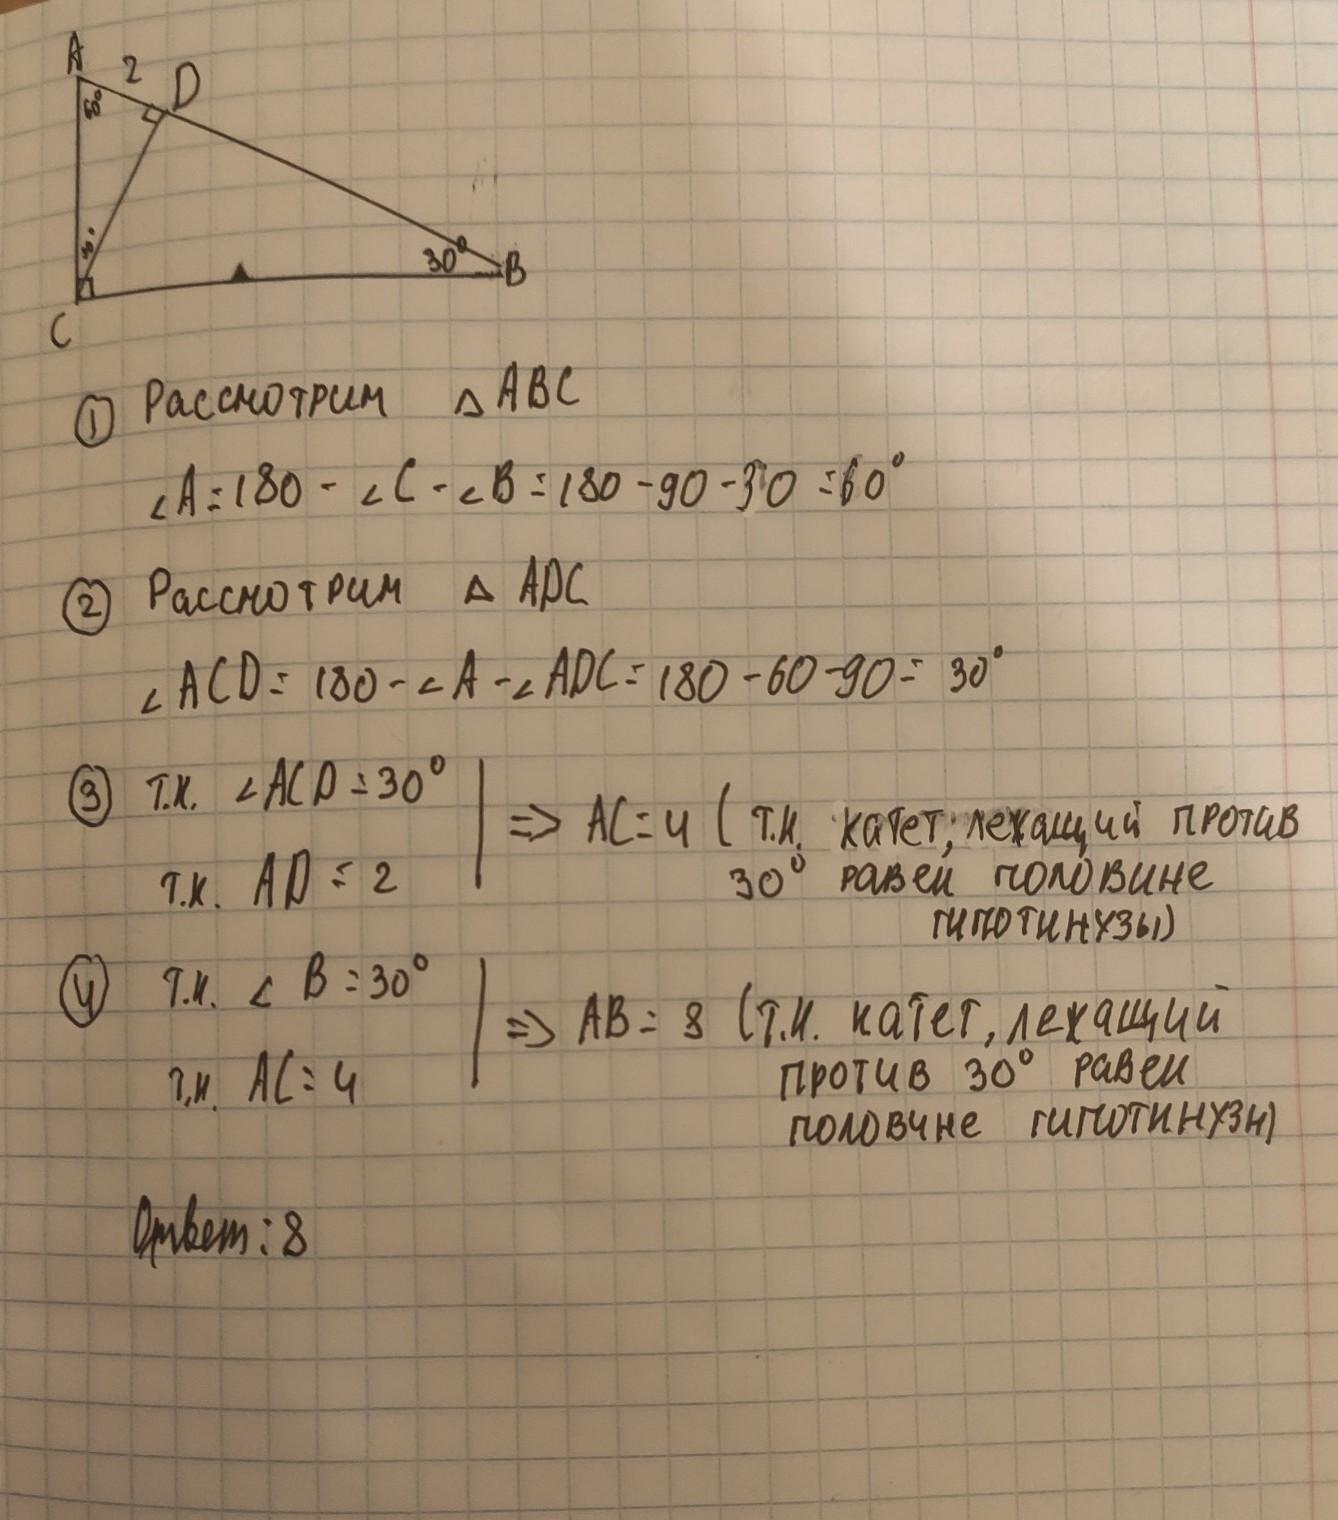 A
2
D
60°
30°
30°
B
C
① Рассмотрим △ ABC
∠A = 180 - ∠C - ∠B = 180 - 90 - 30 = 60°
② Рассмотрим △ ADC
∠ACD = 180 - ∠A - ∠ADC = 180 - 60 - 90 = 30°
③ т.к. ∠ACD = 30°
т.к. AD = 2
=> AC = 4 ( т.к. катет, лежащий против
30° равен половине
гипотинузы)
④ т.к. ∠ B = 30°
т.к. AC = 4
=> AB = 8 (т.к. катет, лежащий
против 30° равен
половине гипотинузы)
Ответ: 8